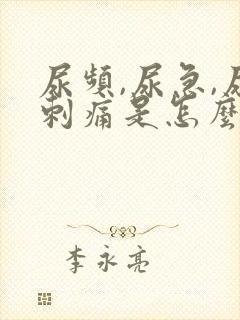 尿頻,尿急,尿
刺痛是怎麼
李永亮